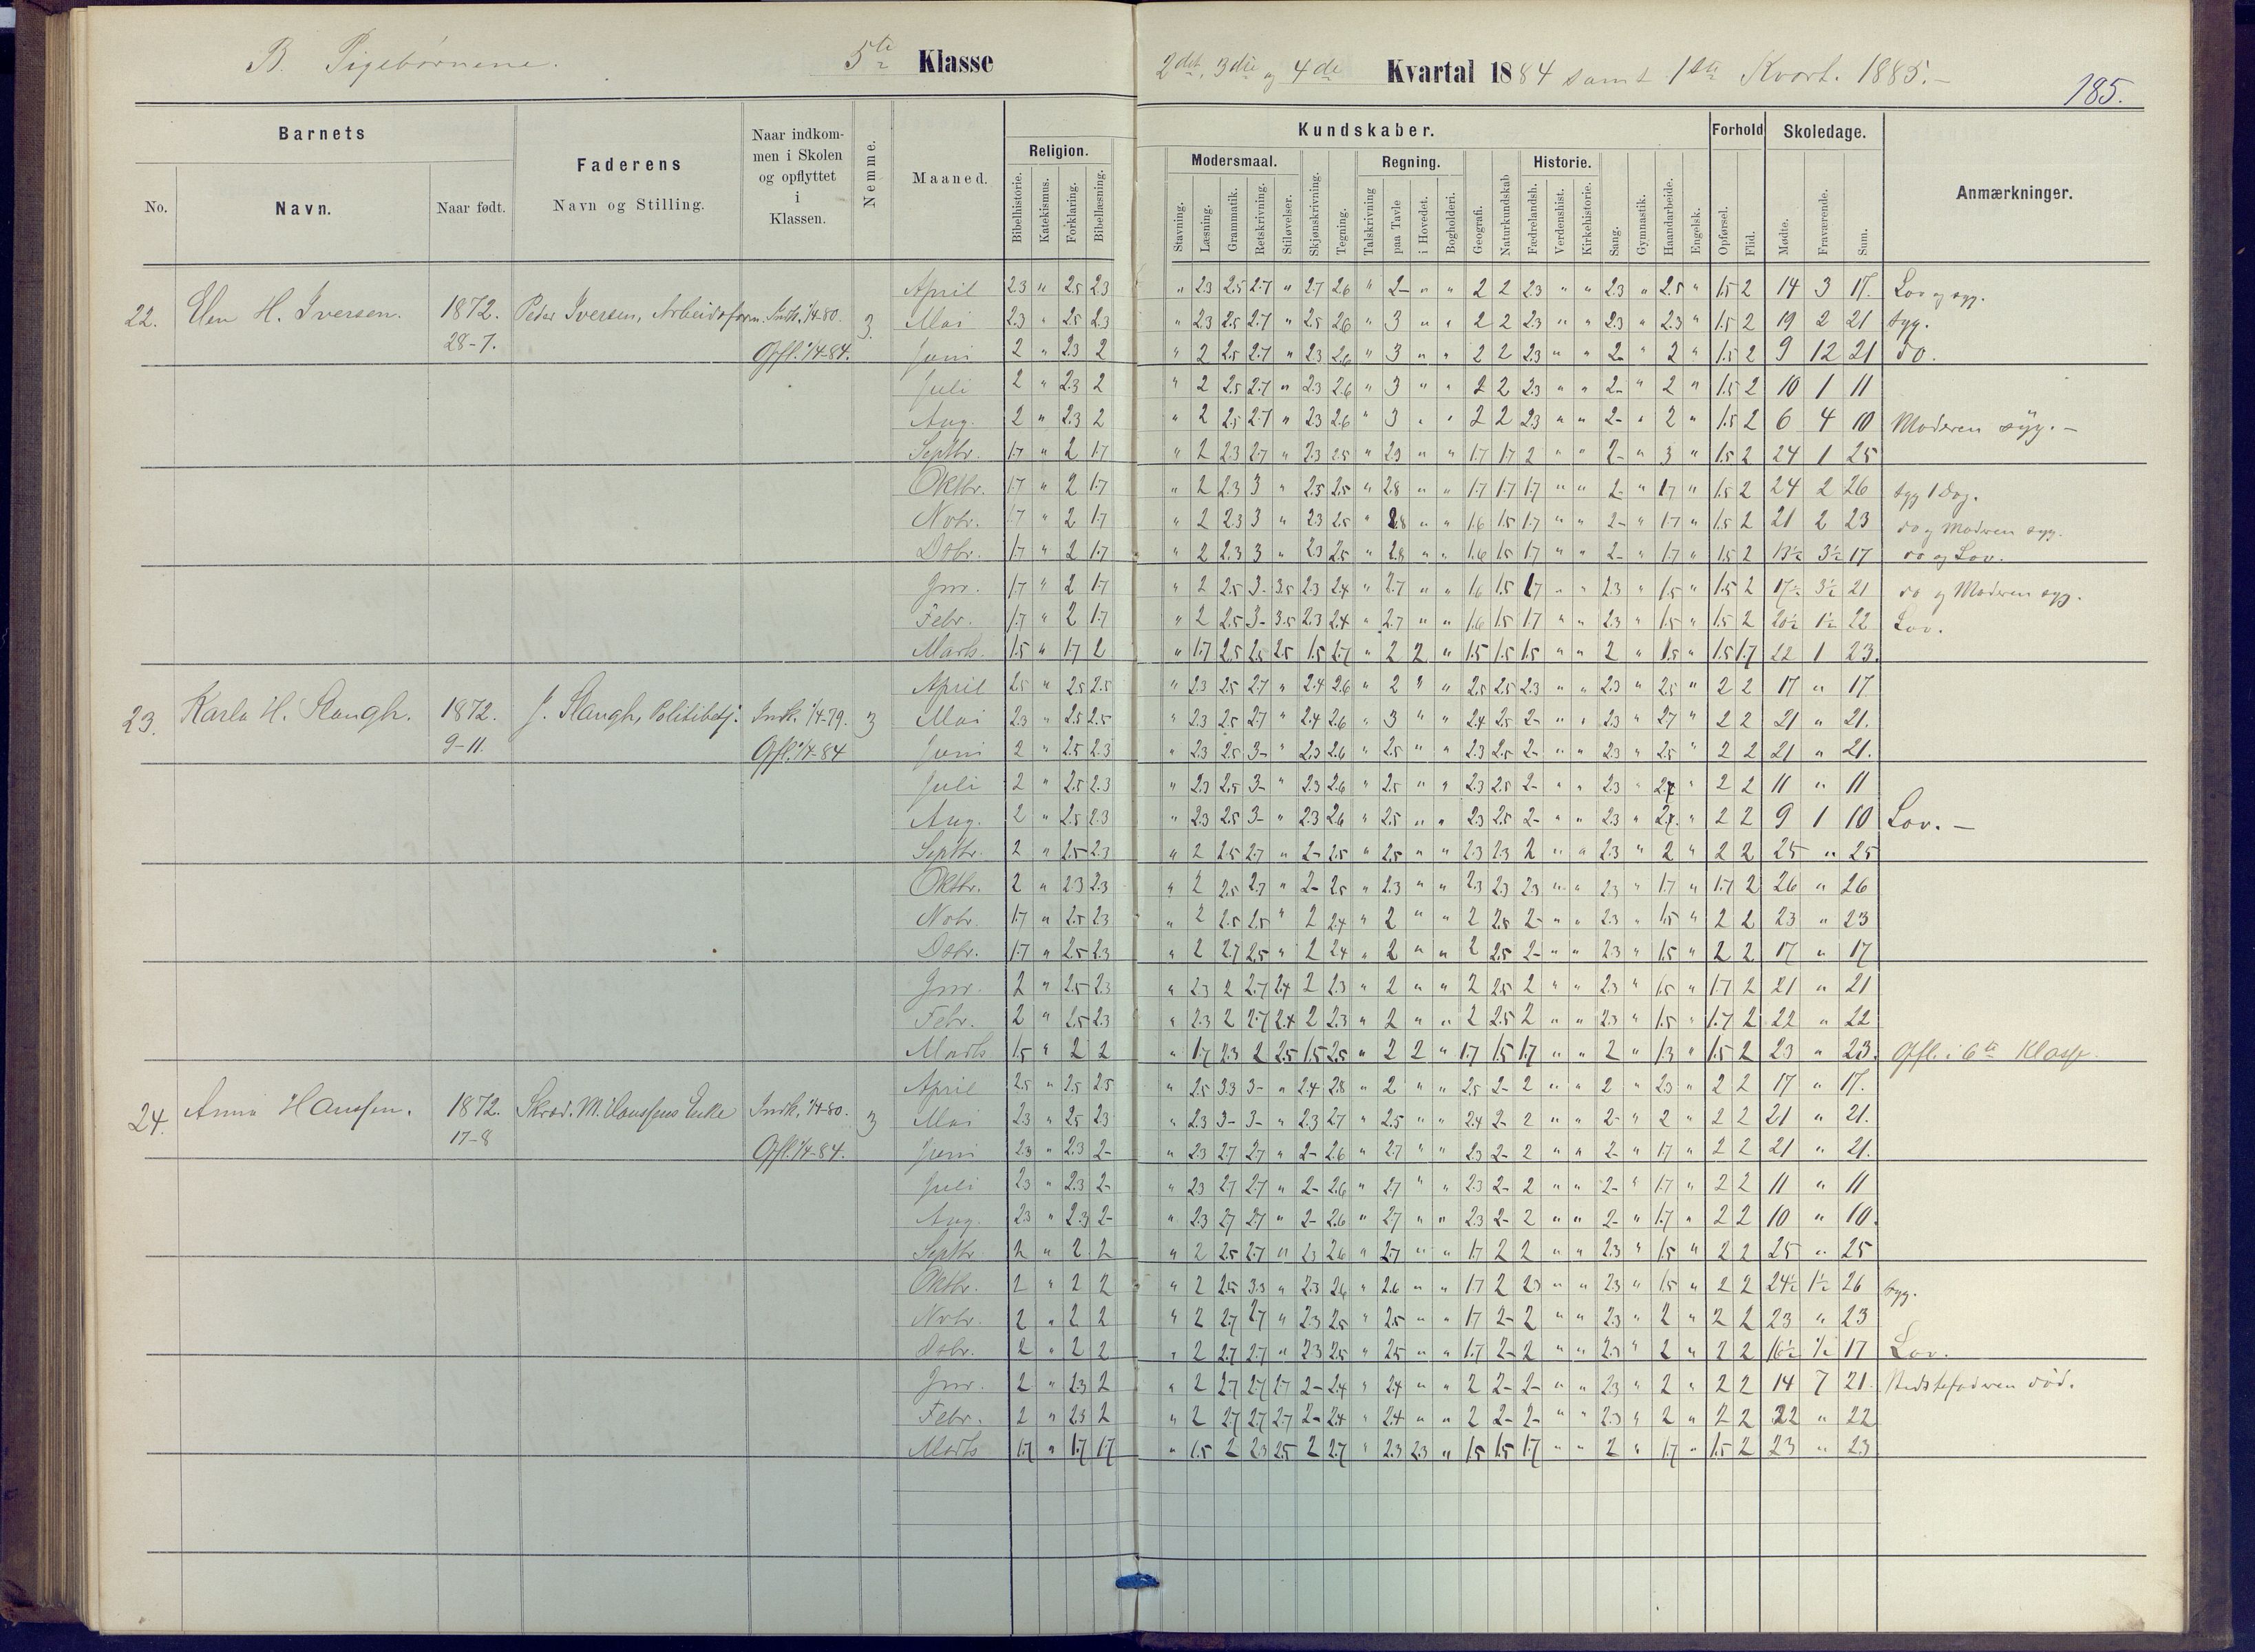 B. Pigebørnene. 5te Klasse 2det, 3die og 4de Kvartal 1884 samt 1ste Kvart. 1885.-
185.
Barnets
No. Navn. Naar født.
Faderens
Navn og Stilling.
Naar indkom-
men i Skolen
og opflyttet
i
Klassen.
Nemme.
Maaned.
Kundskaber.
Religion.
Bibelhistorie. Katekismus. Forklaring. Bibellæsning.
Modersmaal.
Stavning. Læsning. Grammatik. Retskrivning. Stiløvelser. Skjønskrivning. Tegning.
Regning.
Talskrivning paa Tavle i Hovedet. Bogholderi. Geografi. Naturkundskab
Historie.
Fædrelandsh. Verdenshist. Kirkehistorie. Sang. Gymnastik. Haandarbeide. Engelsk.
Forhold
Opførsel. Flid.
Skoledage.
Mødte. Fraværende. Sum.
Anmærkninger.
22. Elen H. Iversen. 1872. Peder Iversen, Arbeidsform. Indk. 1/4-80. 3.
28-7. Opfl. 1/4-84.
April 2.3 " 2.5 2.3 " 2.3 2.5 2.7 " 2.7 2.6 " 2- " " 2 2 2.3 " " 2.3 " 2.5 " 1.5 2 14 3 17. Lov og syg.
Mai 2.3 " 2.5 2.3 " 2.3 2.5 2.7 " 2.5 2.6 " 3 " " 2 2 2.3 " " 2.3 " 2.3 " 1.5 2 19 2 21 syg.
Juni 2 " 2.3 2 " 2 2.5 2.7 " 2.3 2.6 " 3 " " 2 2 2.3 " " 2- " 2 " 1.5 2 9 12 21 do.
Juli 2 " 2.3 2 " 2 2.5 2.7 " 2.3 2.6 " 3 " " 2 2 2.3 " " 2- " 2 " 1.5 2 10 1 11
Aug. 2 " 2.3 2 " 2 2.5 2.7 " 2.3 2.6 " 3 " " 2 2 2.3 " " 2- " 2 " 1.5 2 6 4 10 Moderen syg.-
Septbr. 1.7 " 2 1.7 " 2 2.3 2.7 " 2.3 2.5 " 2.9 " " 1.7 1.7 2 " " 2- " 3 " 1.5 2 24 1 25
Oktbr. 1.7 " 2 1.7 " 2 2.3 3 " 2.5 2.5 " 2.8 " " 1.7 1.7 1.7 " " 2- " 1.7 " 1.5 2 24 2 26 syg 1 Dag.
Nobr. 1.7 " 2 1.7 " 2 2.3 3 " 2.3 2.5 " 2.8 " " 1.6 1.5 1.7 " " 2- " 1.7 " 1.5 2 21 2 23 do og Moderen syg.
Dsbr. 1.7 " 2 1.7 " 2 2.3 3 " 2.3 2.5 " 2.8 " " 1.6 1.5 1.7 " " 2- " 1.7 " 1.5 2 13½ 3½ 17 do og Lov.
Jnr. 1.7 " 2 1.7 " 2 2.5 3- 3.5 2.3 2.4 " 2.7 " " 1.6 1.5 1.7 " " 2.3 " 1.5 " 1.5 2 17½ 3½ 21 do og Moderen syg.
Febr. 1.7 " 2 1.7 " 2 2.5 3- 3.5 2.3 2.4 " 2.7 " " 1.6 1.5 1.7 " " 2.3 " 1.5 " 1.5 2 20½ 1½ 22 Lov.
Marts. 1.5 " 1.7 2 " 1.7 2.5 2.5 2.5 1.5 2.7 " 2 2 " 1.5 1.5 1.5 " " 2 " 1.5 " 1.5 1.7 22 1 23.
23. Karla H. Slaugh. 1872. J. Slaugh, Politibetj. Indk. 1/4-79. 3
9-11. Opfl. 1/4-84
April 2.5 " 2.5 2.5 " 2.3 2.5 2.7 " 2.4 2.6 " 2 " " 2.5 2.5 2.3 " " 2.3 " 2.5 " 2 2 17 " 17
Mai 2.3 " 2.5 2.5 " 2.3 2.5 2.7 " 2.4 2.6 " 3 " " 2.4 2.5 2- " " 2.3 " 2.7 " 2 2 21 " 21.
Juni 2 " 2.5 2.3 " 2.3 2.5 3- " 2.3 2.6 " 2.5 " " 2.3 2.5 2- " " 2.3 " 2.5 " 2 2 21 " 21.
Juli 2 " 2.5 2.3 " 2.3 2.5 3- " 2.3 2.6 " 2.5 " " 2.3 2.5 2- " " 2.3 " 2.7 " 2 2 11 " 11
Aug. 2 " 2.5 2.3 " 2.3 2.5 3- " 2.3 2.6 " 2.5 " " 2.3 2.5 2- " " 2.3 " 2.7 " 2 2 9 1 10 Lov.-
Septbr. 2 " 2.5 2.3 " 2 2.5 2.7 " 2- 2.5 " 2.5 " " 2.3 2.3 2 " " 2.3 " 2 " 2 2 25 " 25
Oktbr. 2 " 2.3 2.3 " 2 2.5 2.7 " 2- 2.5 " 2.3 " " 2.3 2.3 2.3 " " 2.3 " 1.7 " 1.7 2 26 " 26
Nobr. 1.7 " 2.5 2.3 " 2 2.5 2.5 " 2 2.4 " 2 " " 2 2.5 2- " " 2.3 " 1.5 " 2 2 23 " 23
Dsbr. 1.7 " 2.5 2.3 " 2 2.7 2.5 " 2 2.4 " 2 " " 2 2.5 2- " " 2.3 " 1.5 " 2 2 17 " 17
Jnr. 2 " 2.5 2.3 " 2.3 2 2.7 2.4 2 2.3 " 2 " " 2 2.5 2 " " 2.3 " 1.5 " 1.7 2 21 " 21
Febr. 2 " 2.5 2.3 " 2.3 2 2.7 2.4 2 2.3 " 2 " " 2 2.5 2 " " 2.3 " 1.5 " 1.7 2 22 " 22
Marts 1.5 " 2 2 " 1.7 2.3 2 2.5 1.5 2.5 " 2 2 " 1.7 1.5 1.7 " " 2 " 1.3 " 1.5 2 23 " 23. Opfl. i 6te Klasse.
24. Anna Hanssen. 1872. Skræd. M. Hanssens Enke Indk. 1/4-80. 3
17-8 Opfl. 1/4-84.
April 2.5 " 2.5 2.5 " 2.5 3.3 3- " 2.4 2.8 " 2 " " 2.5 2- 2 " " 2 " 2.3 " 2 2 17 " 17.
Mai 2.3 " 2.5 2.3 " 2.3 3- 3- " 2.3 2.7 " 2.5 " " 2.4 2- 2 " " 2- " 2 " 2 2 21 " 21.
Juni 2.3 " 2.3 2- " 2.3 2.7 2.7 " 2- 2.6 " 2.7 " " 2.3 2- 2 " " 2- " 1.7 " 2 2 21 " 21.
Juli 2.3 " 2.3 2- " 2.3 2.7 2.7 " 2- 2.6 " 2.7 " " 2.3 2- 2 " " 2- " 1.7 " 2 2 11 " 11
Aug. 2.3 " 2.3 2- " 2.3 2.7 2.7 " 2- 2.6 " 2.7 " " 2.3 2- 2 " " 2- " 1.7 " 2 2 10 " 10.
Septbr. 2 " 2 2 " 2 2.5 2.7 " 2.3 2.6 " 2.7 " " 1.7 2 2 " " 2.3 " 1.5 " 2 2 25 " 25
Oktbr. 2 " 2 2 " 2 2.5 3.3 " 2.3 2.6 " 2.6 " " 1.7 2 2.3 " " 2.3 " 1.5 " 2 2 24½ 1½ 26 syg.
Nobr. 2 " 2 2 " 2 2.7 2.7 " 2.3 2.5 " 2.5 " " 1.7 2- 2 " " 2.3 " 2 " 2 2 23 " 23
Dsbr. 2 " 2 2 " 2 2.7 2.7 " 2.3 2.5 " 2.5 " " 1.7 2- 2 " " 2.3 " 2 " 2 2 16½ ½ 17 Lov.
Jnr. 2 " 2.3 2 " 2 2.7 2.7 2.7 2- 2.4 " 2.4 " " 2 2- 2- " " 2.3 " 2 " 2 2 14 7 21. Bedstefaderen död.
Febr. 2 " 2.3 2 " 2 2.7 2.7 2.7 2- 2.4 " 2.4 " " 2 2- 2- " " 2.3 " 2 " 2 2 22 " 22
Marts 1.7 " 1.7 1.7 " 1.5 2 2.3 2.5 2 2.7 " 2.3 2.3 " 1.5 1.5 1.7 " " 2 " 1.7 " 1.5 2 23 " 23